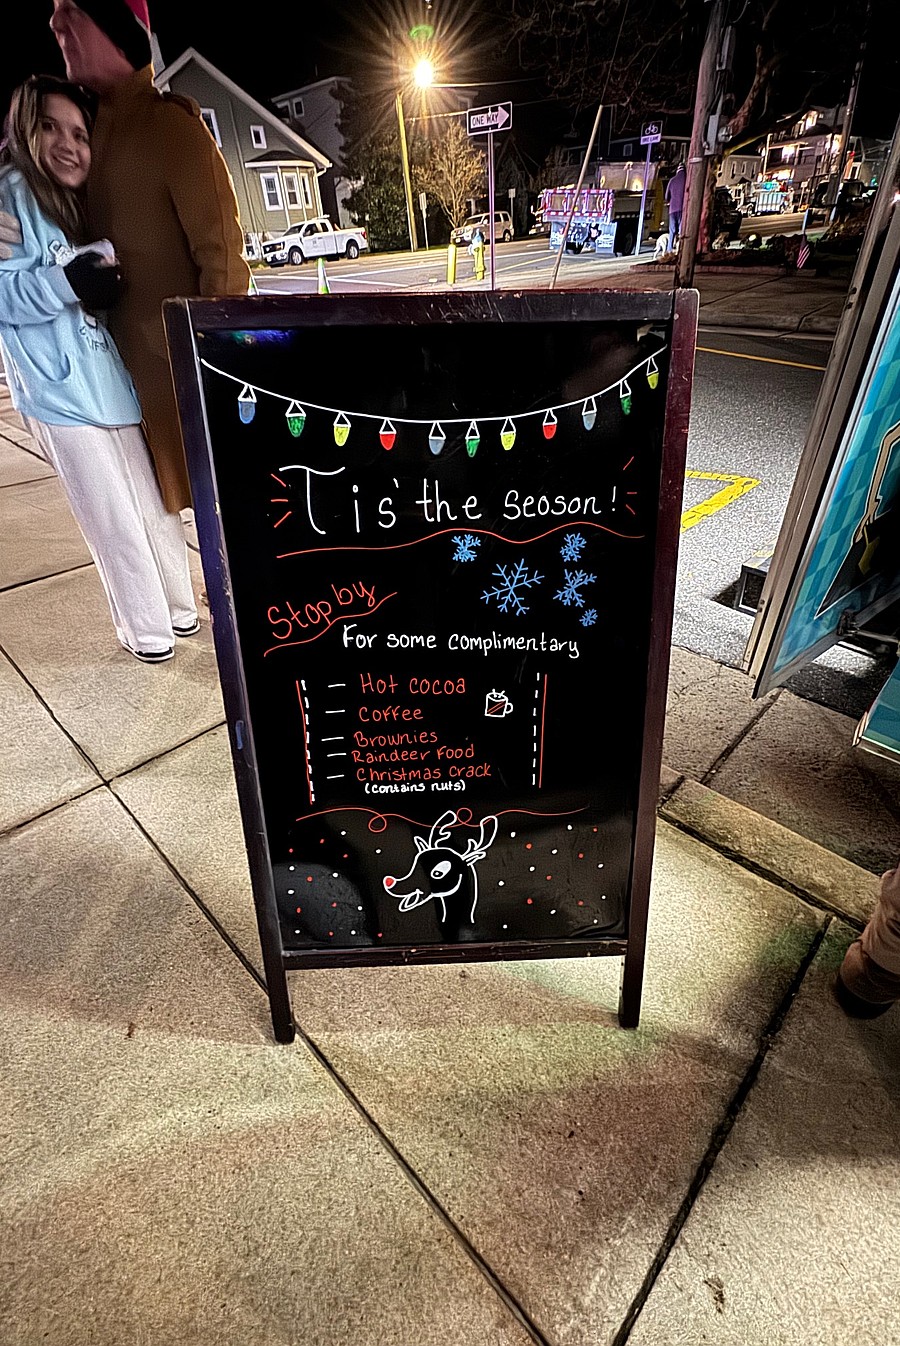 ONE WAY
Tis' the season!
Stop by
For some complimentary
— Hot cocoa
— Coffee
— Brownies
— Raindeer Food
— Christmas crack
(contains nuts)